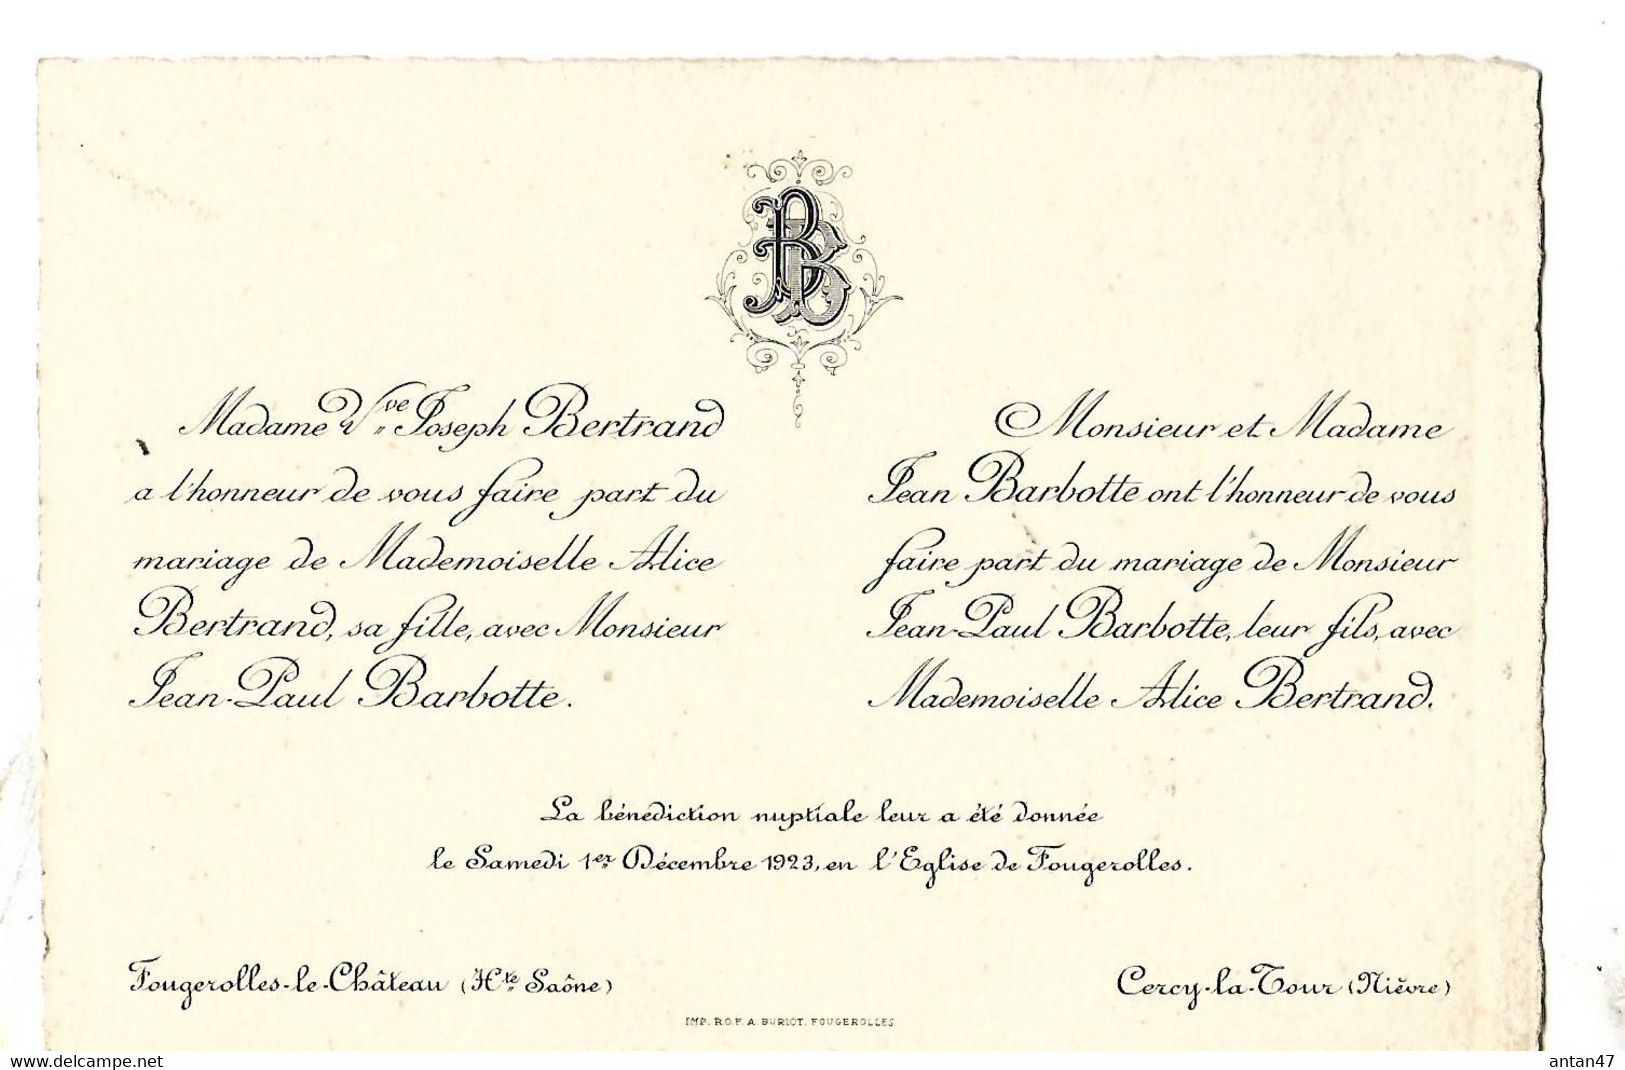 BB
Madame Vve Joseph Bertrand
a l'honneur de vous faire part du
mariage de Mademoiselle Alice
Bertrand, sa fille, avec Monsieur
Jean-Paul Barbotte.
Monsieur et Madame
Jean Barbotte ont l'honneur de vous
faire part du mariage de Monsieur
Jean-Paul Barbotte, leur fils, avec
Mademoiselle Alice Bertrand.
La bénédiction nuptiale leur a été donnée
le Samedi 1er Décembre 1923, en l'Eglise de Fougerolles.
Fougerolles-le-Château (Hte Saône)
Cercy-la-Tour (Nièvre)
IMP. R.O.F. A. BURIOT, FOUGEROLLES
https://www.delcampe.net
antan47